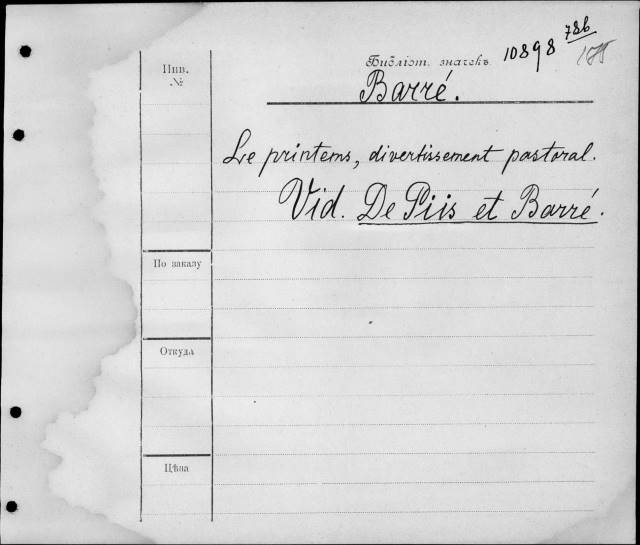 Инв.
№
Библіот. значекъ 10898 786
Barré.
Le printems, divertissement pastoral.
Vid. De Piis et Barré.
По заказу
Откуда
Цѣна